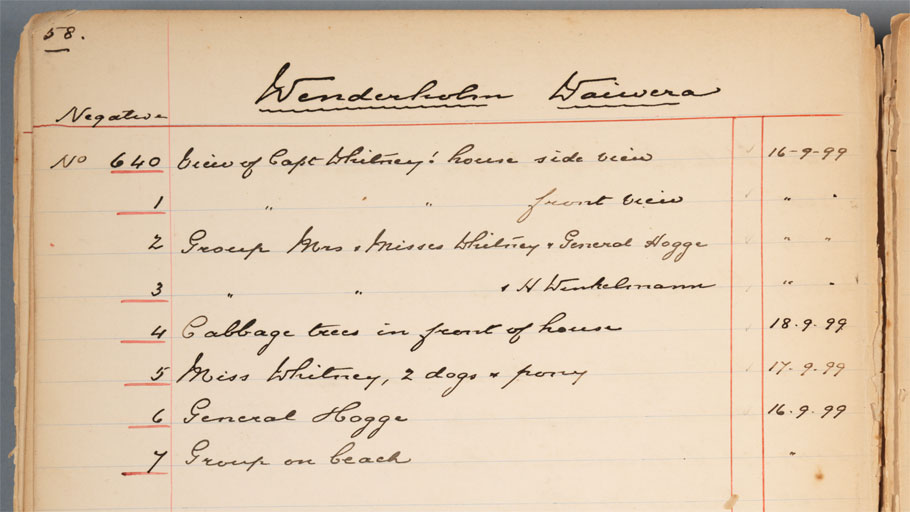 58.
Wenderholm Waiwera
Negative
No 640 View of Capt Whitney's house side view 16-9-99
1 " " " front view " "
2 Group Mrs & Misses Whitney & General Hogge " "
3 " " & H Winkelmann " "
4 Cabbage trees in front of house 18.9.99
5 Miss Whitney, 2 dogs & pony 17-9-99
6 General Hogge 16.9.99
7 Group on beach "